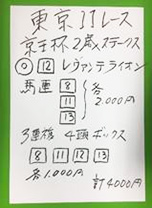 東京11レース
京王杯2歳ステークス
◎ 12 レヴァンテライオン
馬連 8 各
11 2.000円
13
三連複 4頭ボックス
8 11 12 13
各1.000円
計4000円